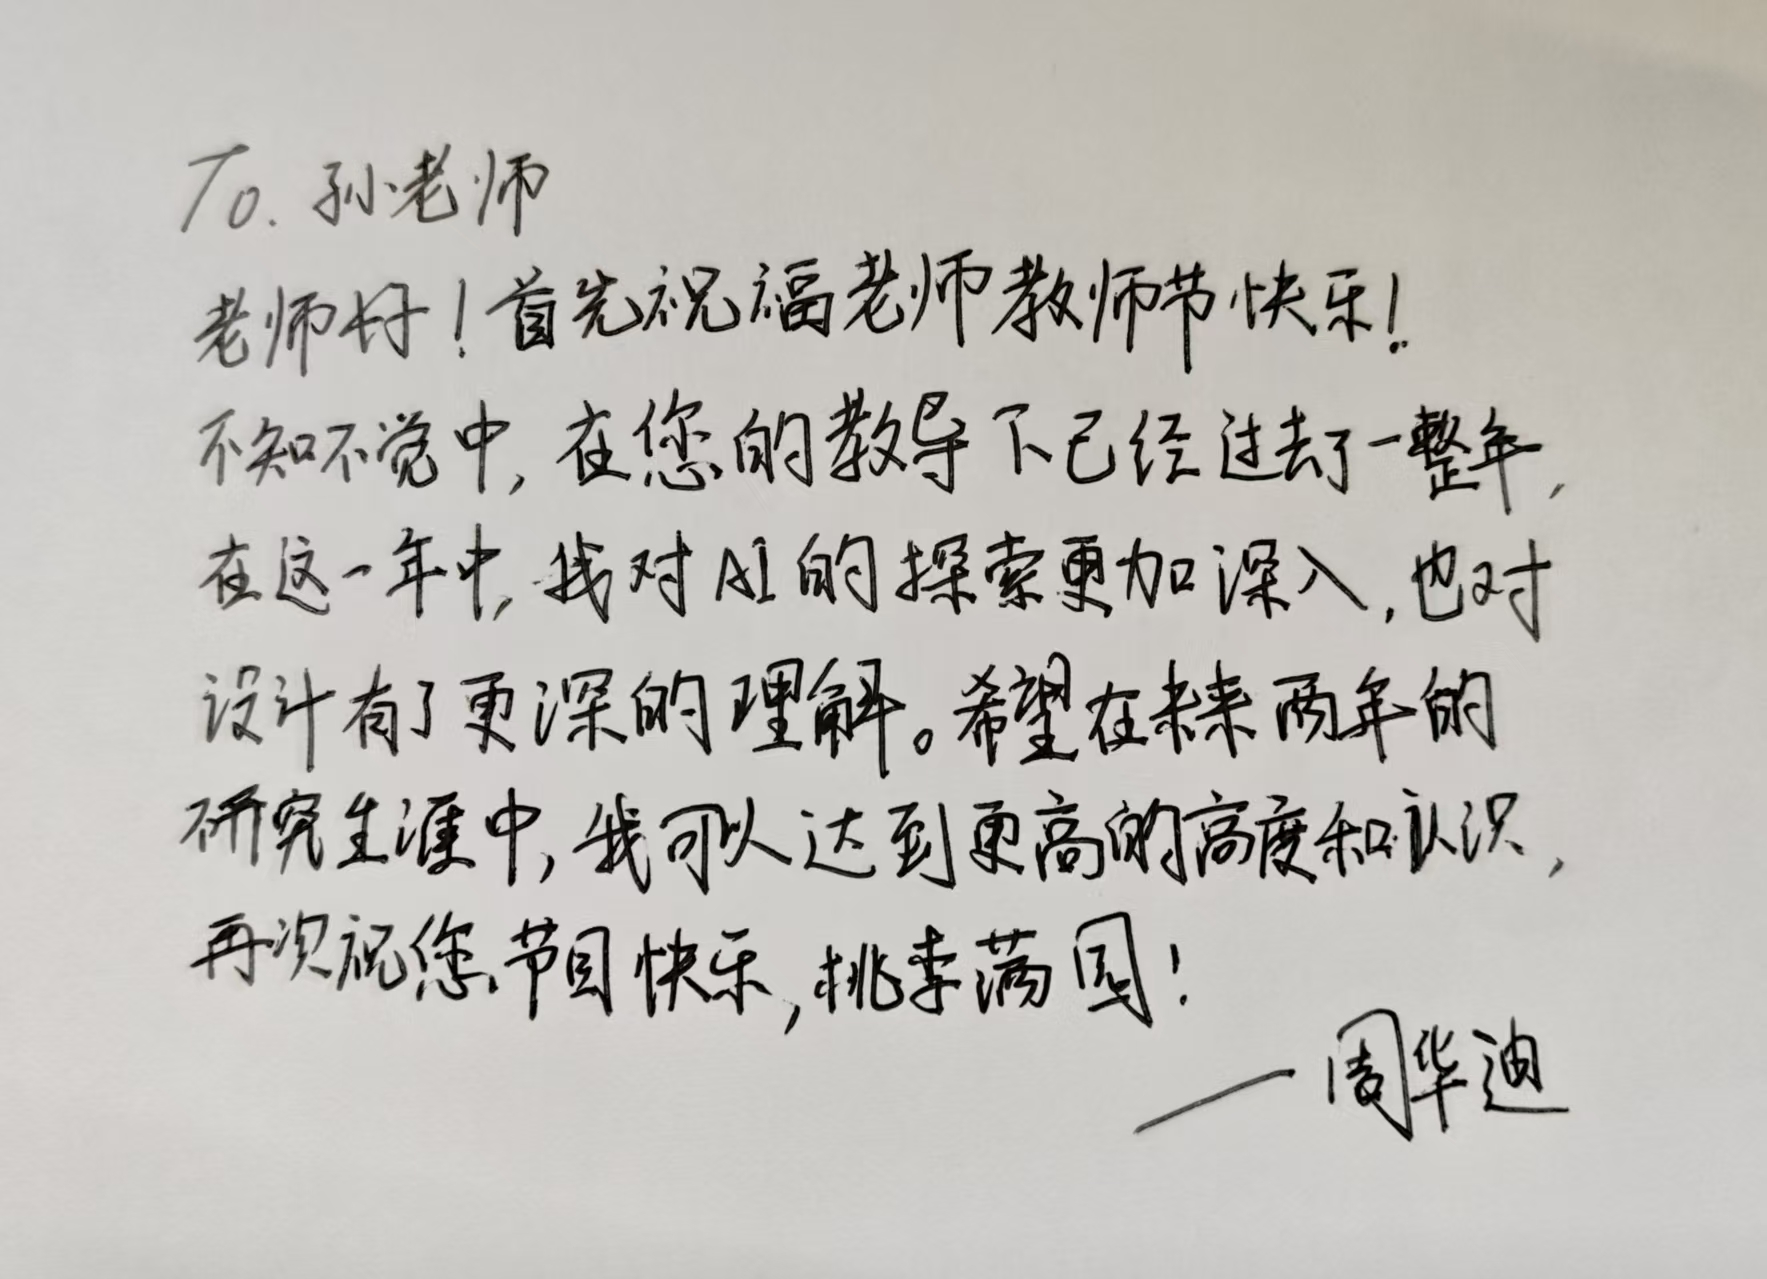 To. 孙老师
老师好！首先祝福老师教师节快乐！
不知不觉中，在您的教导下已经过去了一整年，
在这一年中，我对AI的探索更加深入，也对
设计有了更深的理解。希望在未来两年的
研究生涯中，我可以达到更高的高度和认识，
再次祝您节日快乐，桃李满园！
——周华迪